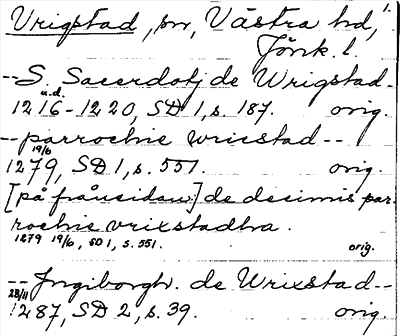 Vrigstad, sn, Västra hd, 1.
Jönk. l.
-- S. Sacerdotj de Wrigstad -
u.d.
1216-1220, SD 1, s. 187. orig.
-- parrochie wricstad --
19/6
1279, SD 1, s. 551. orig.
[på frånsidan] de decimis par-
rochie vrixstadha.
1279 19/6, SD 1, s. 551. orig.
-- Jngiborgh. de Wrixstad --
28/11
1287, SD 2, s. 39. orig.